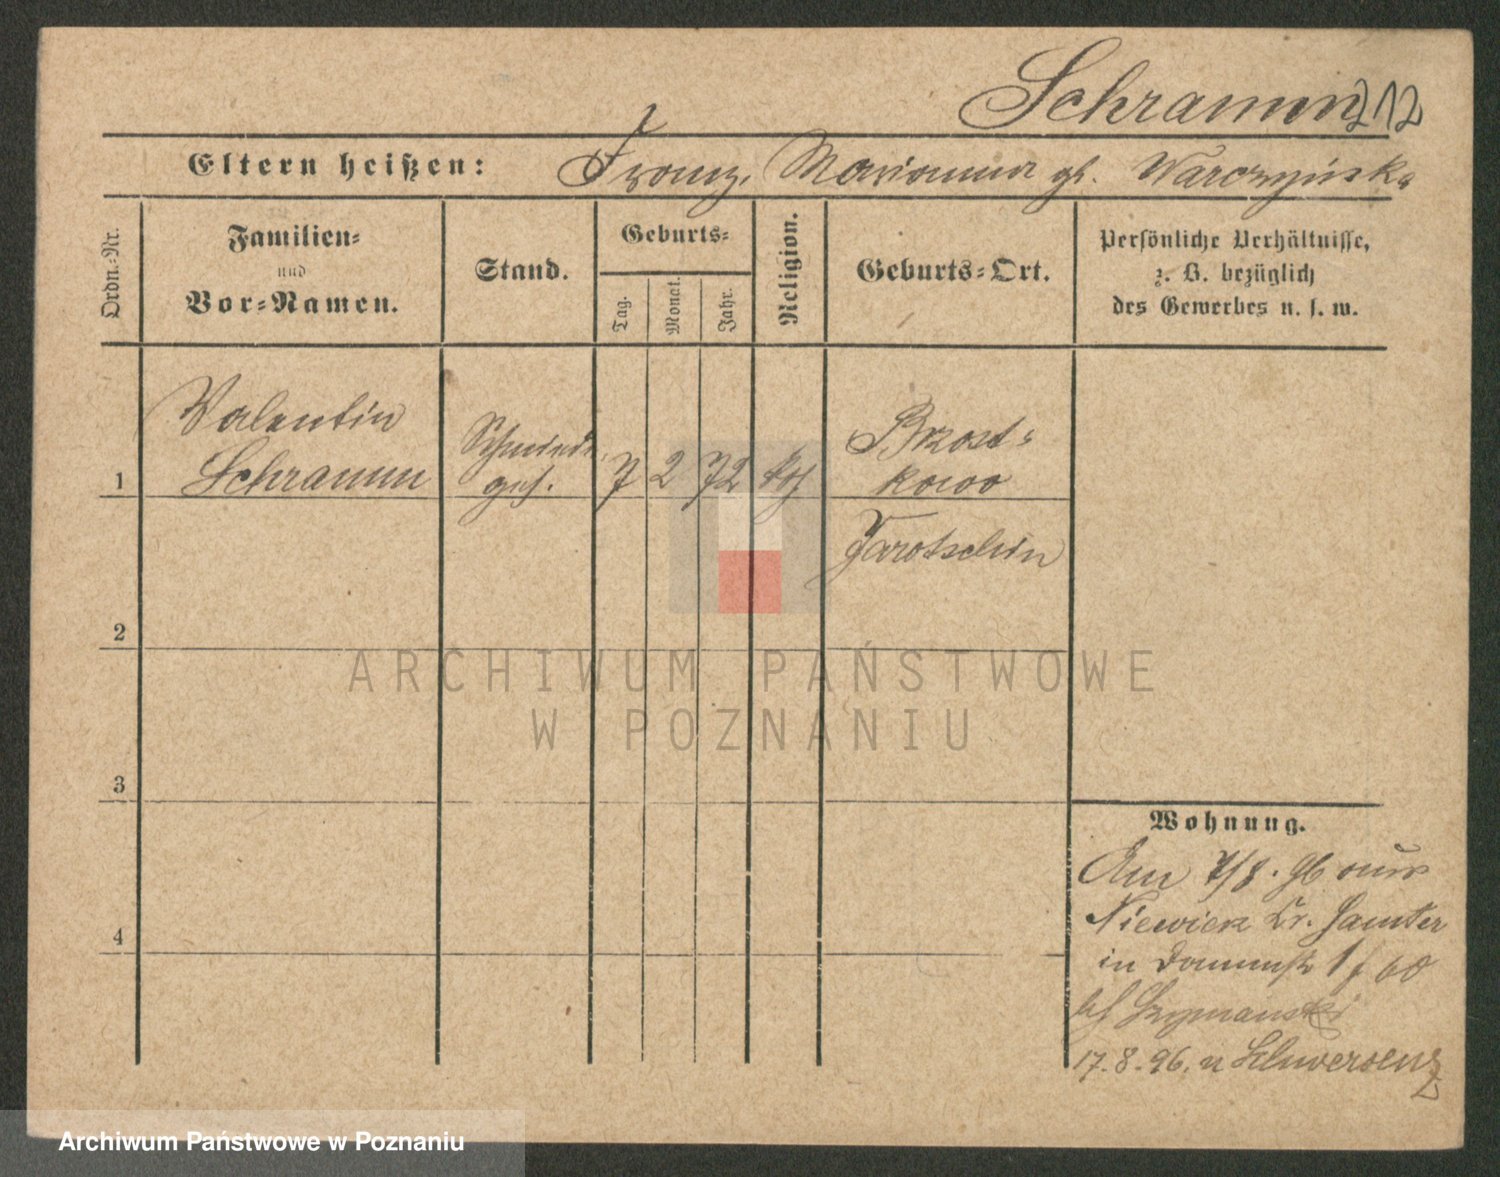 Schramm 212
Eltern heißen: Franz, Marianna gb. Warczyńska
Ordn.-Nr.
Familien-
und
Vor-Namen.
Stand.
Geburts-
Tag.
Monat.
Jahr.
Religion.
Geburts-Ort.
Persönliche Verhältnisse,
z. B. bezüglich
des Gewerbes u. s. w.
Valentin
Schramm
Schmiede
ges.
1
7 2 72 kth
Brzost-
kowo
Jarotschin
2
ARCHIWUM PAŃSTWOWE
W POZNANIU
3
Wohnung.
Am 7/8. 96 aus
Kr. Samter
in 1
bei Szymanski
17.8.96. n Schwersenz
4
Archiwum Państwowe w Poznaniu